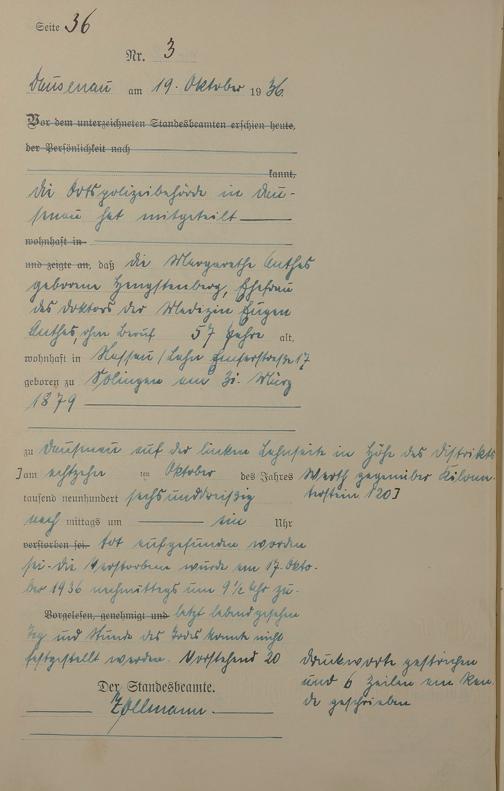 Seite 36
Nr. 3
Dausenau am 19. Oktober 1936.
Vor dem unterzeichneten Standesbeamten erschien heute,
der Persönlichkeit nach
kannt,
die Ortspolizeibehörde in Dau-
senau hat mitgeteilt
wohnhaft in
und zeigte an, daß die Margarethe Anthes
geborene Hengstenberg, Ehefrau
des Doktors der Medizin Eugen
Anthes, ohne Beruf 57 Jahre alt,
wohnhaft in Nassau/Lahn Emserstraße 17
geboren zu Solingen am 31. März
1879
zu Dausenau auf der linken Lahnseite in Höhe des Distrikts
am achtzehn ten Oktober des Jahres Werth gegenüber Kilome-
tausend neunhundert sechsunddreißig terstein 120]
nach mittags um ein Uhr
verstorben sei. tot aufgefunden worden
sei. Die Verstorbene wurde am 17. Okto-
ber 1936 nachmittags um 9½ Uhr zu-
Vorgelesen, genehmigt und letzt lebend gesehen
Tag und Stunde des Todes konnte nicht
festgestellt werden. Vorstehend 20 Druckworte gestrichen
und 6 Zeilen am Ran-
de geschrieben
Der Standesbeamte.
Zollmann.